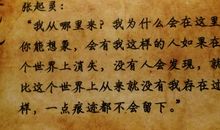 张起灵：
"我从哪里来？我为什么会在这里
你能想象，会有我这样的人如果在
个世界上消失，没有人会发现，就
比这个世界上从来就没有我存在过
样，一点痕迹都不会留下。"